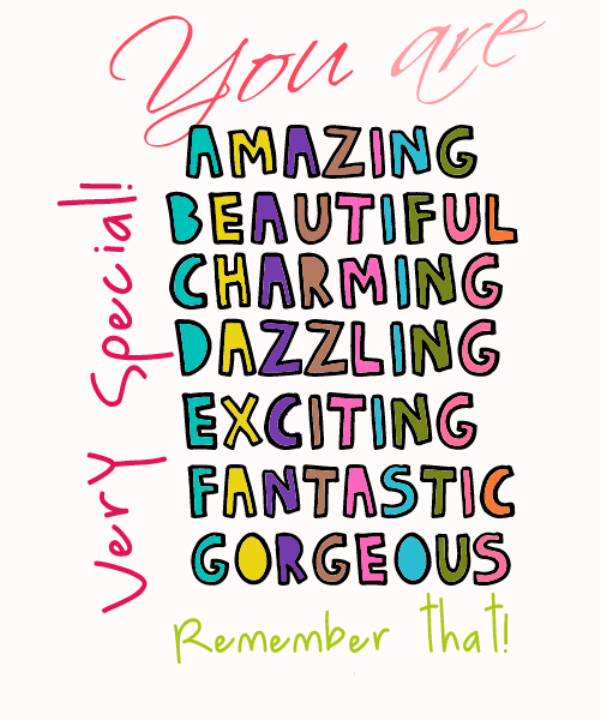 You are
Very Special!
AMAZING
BEAUTIFUL
CHARMING
DAZZLING
EXCITING
FANTASTIC
GORGEOUS
Remember that!